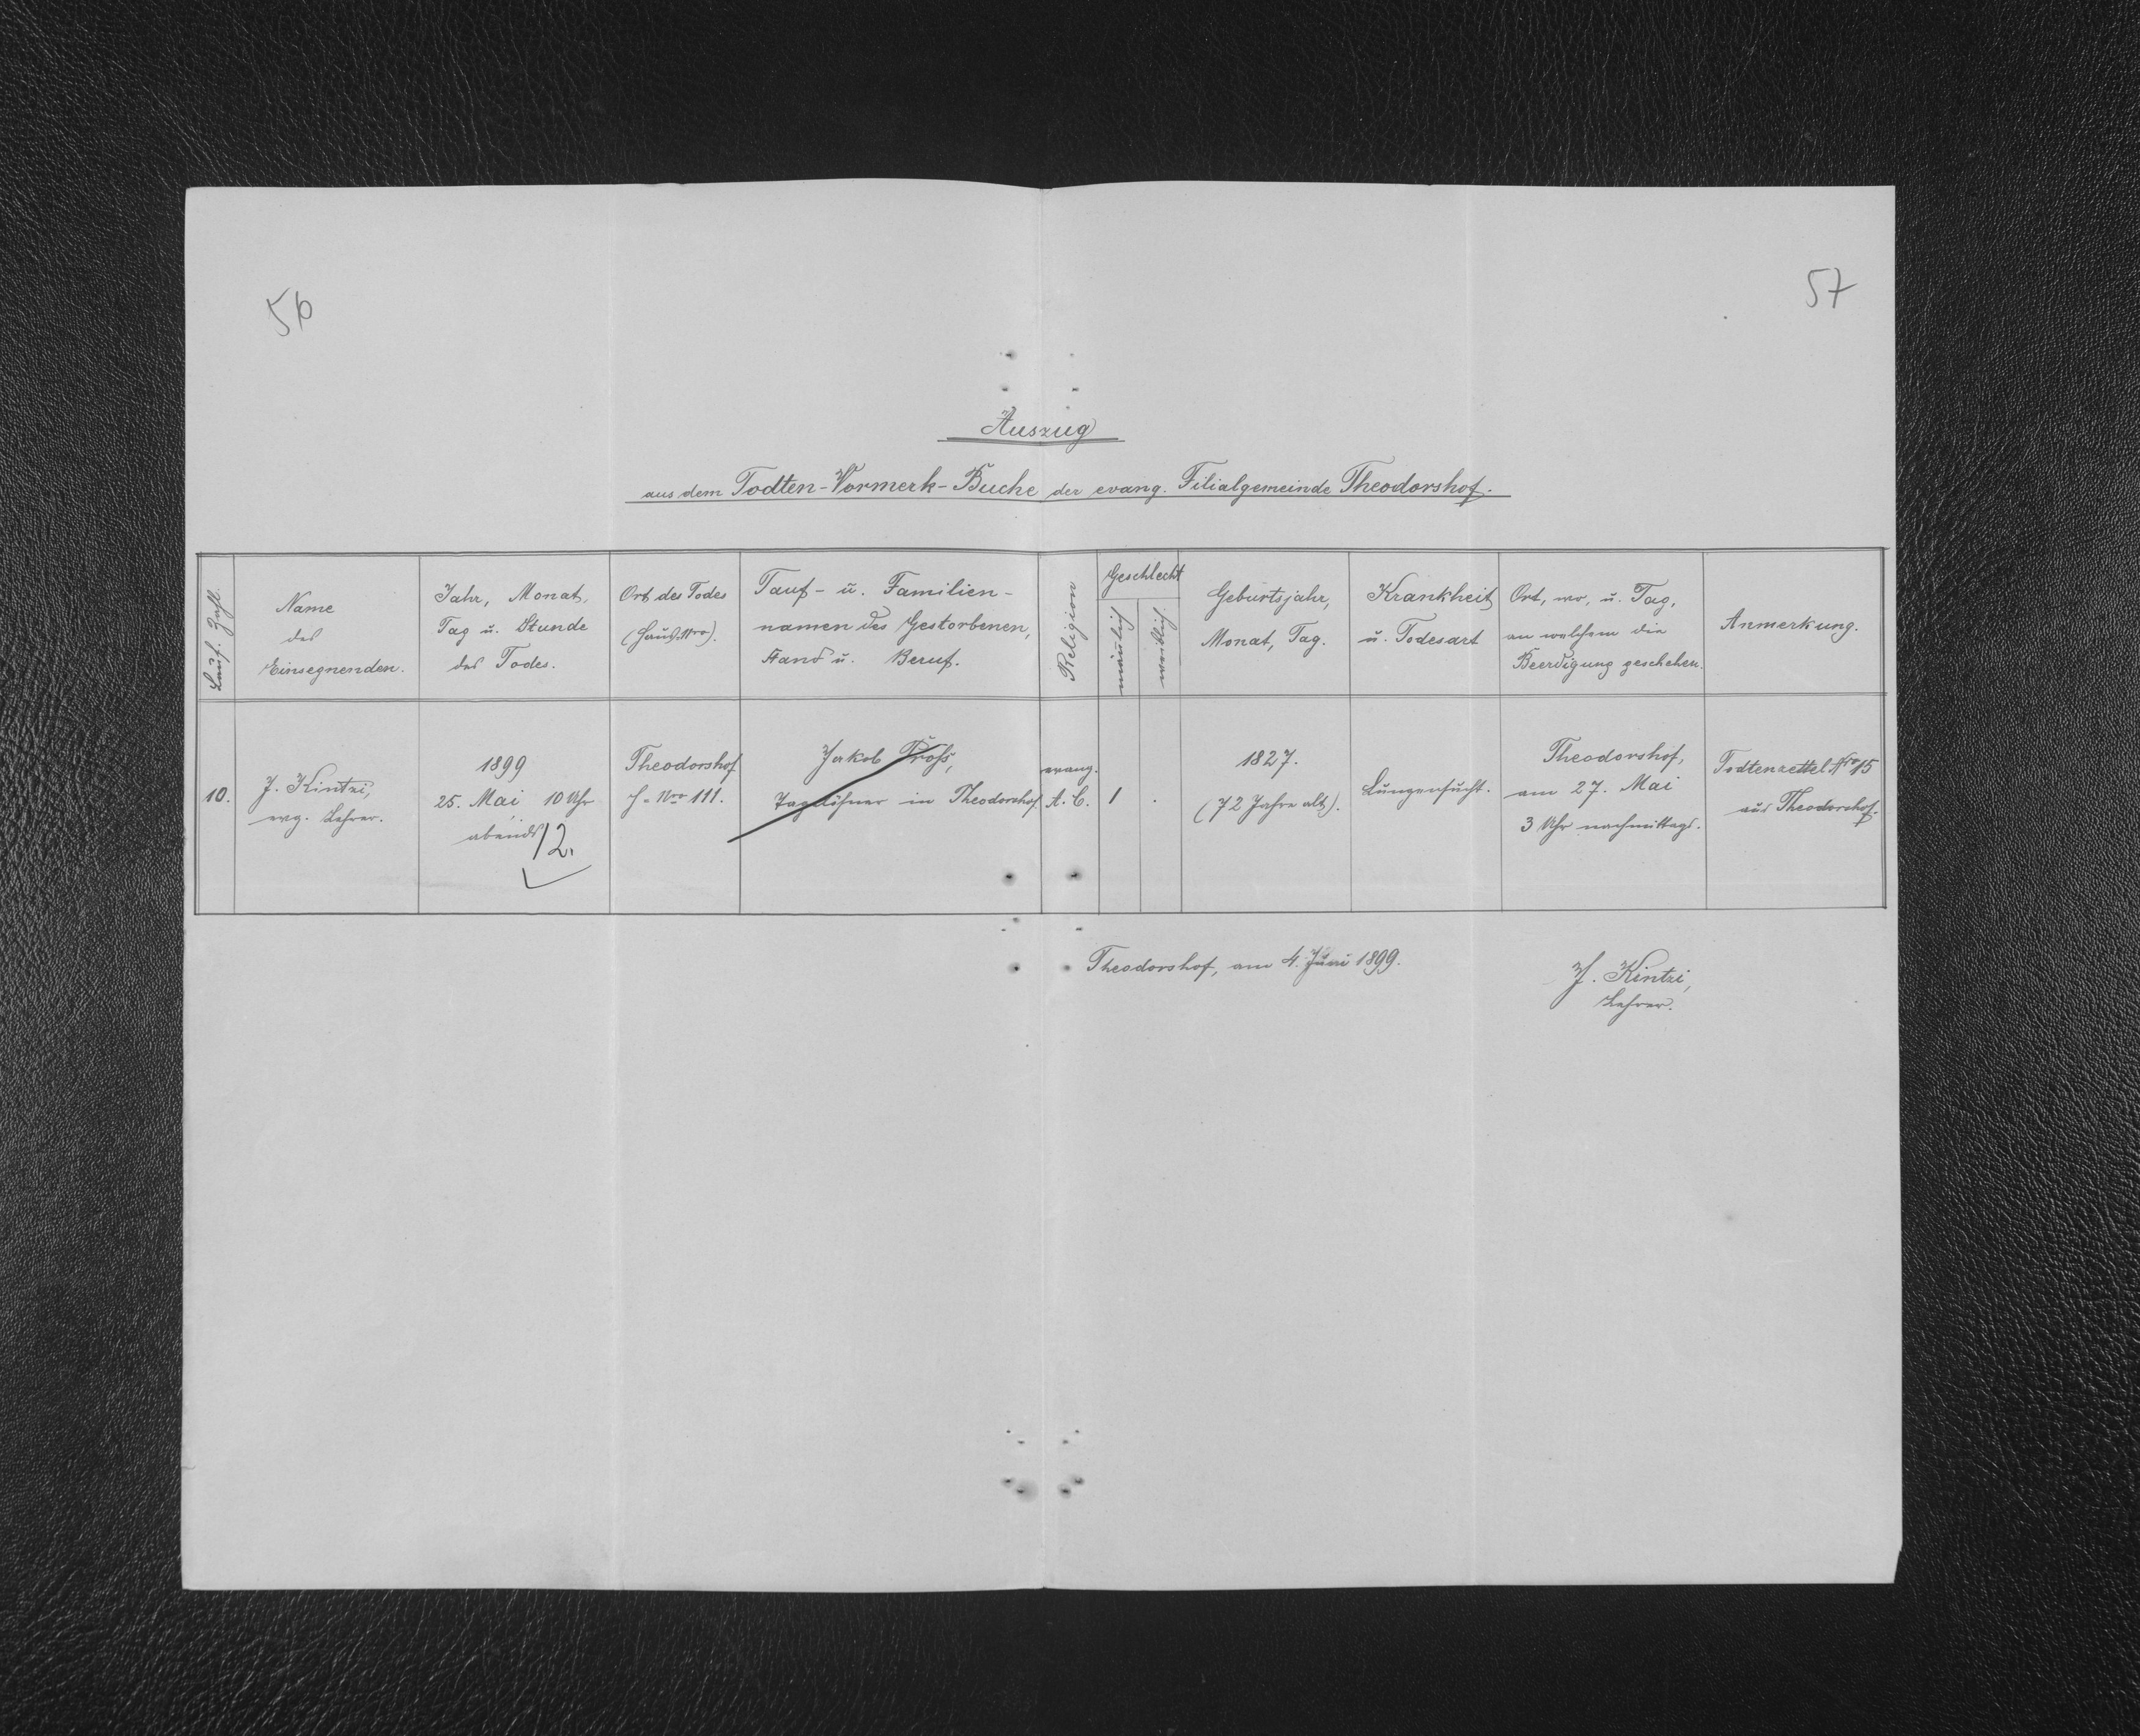 56
57
Auszug
aus dem Todten-Vormerk-Buche der evang. Filialgemeinde Theodorshof.
Lauf. Zahl.
Name
des
Einsegnenden.
Jahr, Monat,
Tag u. Stunde
des Todes.
Ort des Todes
(Haus-Nro).
Tauf- u. Familien-
namen des Gestorbenen,
Stand u. Beruf.
Religion
Geschlecht
männlich
weiblich
Geburtsjahr,
Monat, Tag.
Krankheit
u. Todesart
Ort, wo, u. Tag,
an welchem die
Beerdigung geschehen.
Anmerkung.
10.
J. Kintzi,
evg. Lehrer.
1899
25. Mai 10 Uhr
abends
12.
Theodorshof
H.-Nro 111.
Jakob
Taglöhner in Theodorshof
evang.
A. C.
1
.
1827.
(72 Jahre alt).
Lungensucht.
Theodorshof,
am 27. Mai
3 Uhr nachmittags.
Todtenzettel Nro 15
aus Theodorshof.
Theodorshof, am 4. Juni 1899.
J. Kintzi,
Lehrer.